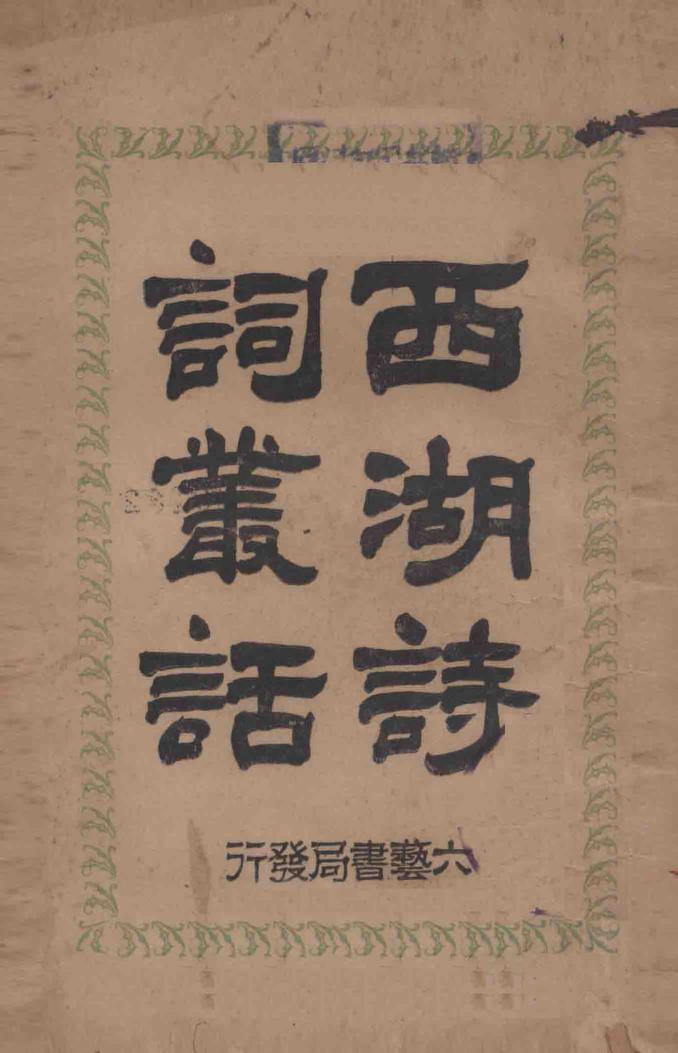 西湖詩
詞叢話
六藝書局發行